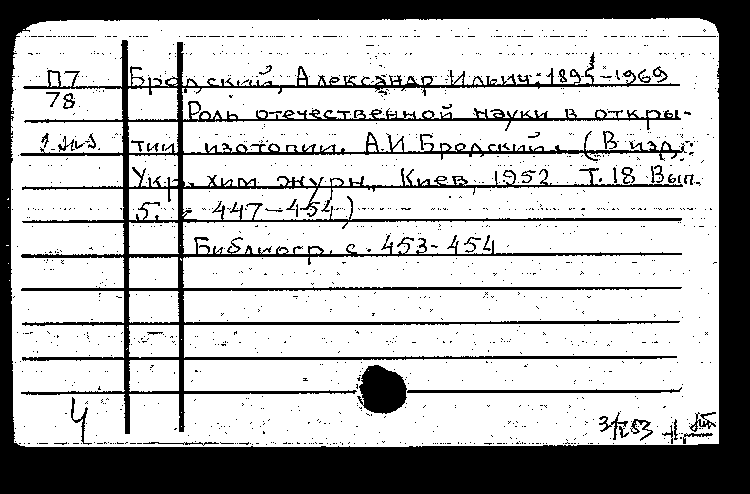 П7 Бродский, Александр Ильич; 1895-1969
78 Роль отечественной науки в откры-
2 экз. тии изотопии. А.И. Бродский. (В изд.:
Укр. хим журн., Киев, 1952 Т.18 Вып.
5. с 447-454)
Библиогр. с. 453-454
Ч